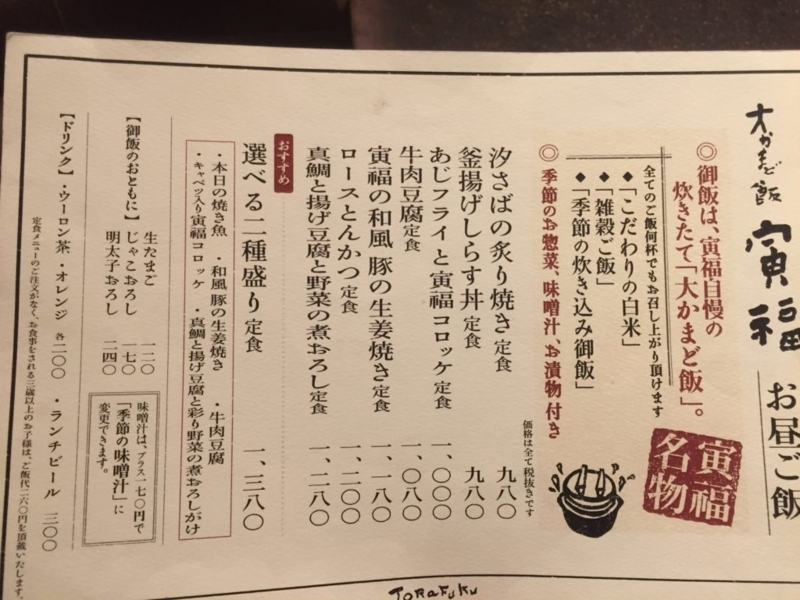 大かまど飯 寅福
お昼ご飯
寅福名物
◎御飯は、寅福自慢の
炊きたて「大かまど飯」。
全てのご飯何杯でもお召し上がり頂けます
◆「こだわりの白米」
◆「雑穀ご飯」
◆「季節の炊き込み御飯」
◎季節のお惣菜、味噌汁、お漬物付き
価格は全て税抜きです
汐さばの炙り焼き定食 九八〇
釜揚げしらす丼定食 九八〇
あじフライと寅福コロッケ定食 一、〇〇〇
牛肉豆腐定食 一、〇八〇
寅福の和風 豚の生姜焼き定食 一、一八〇
ロースとんかつ定食 一、二〇〇
真鯛と揚げ豆腐と野菜の煮おろし定食 一、二八〇
おすすめ
選べる二種盛り定食 一、三八〇
・本日の焼き魚 ・和風 豚の生姜焼き ・牛肉豆腐
・キャベツ入り寅福コロッケ ・真鯛と揚げ豆腐と彩り野菜の煮おろしがけ
【御飯のおともに】
生たまご 一二〇
じゃこおろし 一七〇
明太子おろし 二四〇
味噌汁は、プラス一七〇円で
「季節の味噌汁」に
変更できます。
【ドリンク】・ウーロン茶 ・オレンジ 各二〇〇 ・ランチビール 三〇〇
定食メニューのご注文がなく、お食事をされる三歳以上のお子様は、ご飯代二六〇円を頂戴いたします。
TORAFUKU